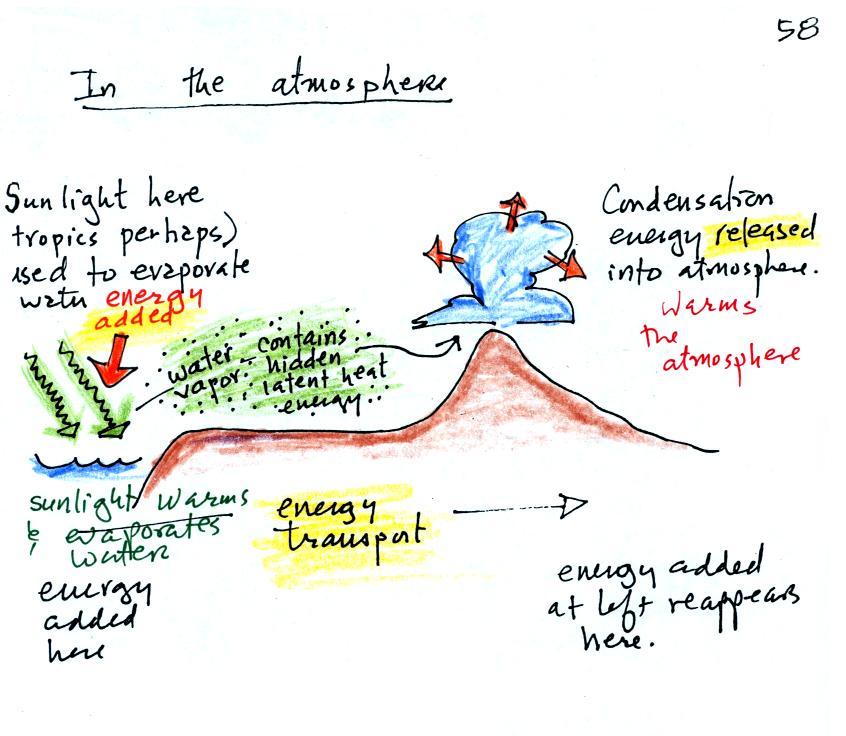 58
In the atmosphere
Sunlight here
tropics perhaps)
used to evaporate
water energy
added
water
vapor
contains
hidden
latent heat
energy
Condensation
energy released
into atmosphere.
Warms
the
atmosphere
sunlight warms
& evaporates
water
energy
added
here
energy
transport
energy added
at left reappears
here.